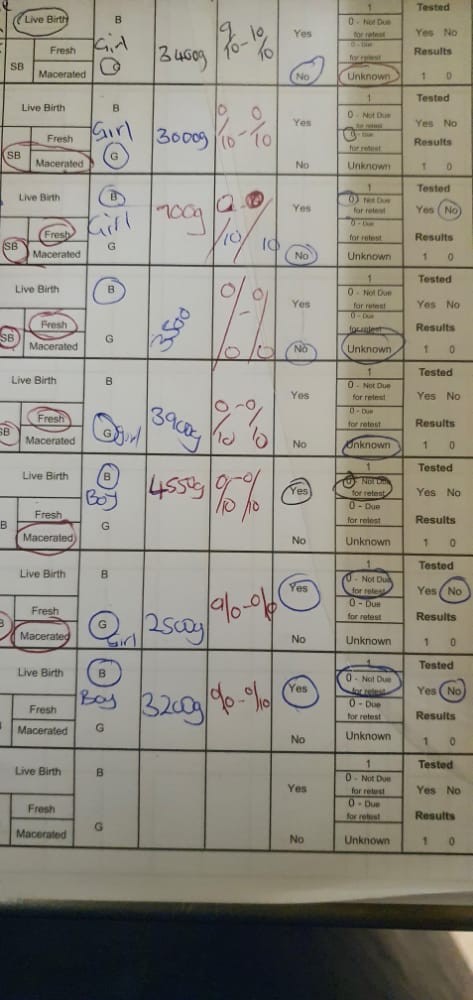 Live Birth B 1 Tested
Girl 3400g 9/10-10/10 Yes 0 - Not Due for retest Yes No
SB Fresh 0 - Due for retest Results
Macerated G No Unknown 1 0
Live Birth B 1 Tested
Girl 3000g 0/10-0/10 Yes 0 - Not Due for retest Yes No
SB Fresh 0 - Due for retest Results
Macerated G No Unknown 1 0
Live Birth B 1 Tested
Girl 700g 0/10 0/10 Yes 0 - Not Due for retest Yes No
SB Fresh 0 - Due for retest Results
Macerated G No Unknown 1 0
Live Birth B 1 Tested
0/10-0/10 Yes 0 - Not Due for retest Yes No
SB Fresh 0 - Due for retest Results
Macerated G No Unknown 1 0
Live Birth B 1 Tested
3900g 0/10-0/10 Yes 0 - Not Due for retest Yes No
SB Fresh 0 - Due for retest Results
Macerated G girl No Unknown 1 0
Live Birth B 1 Tested
Boy 4550g 0/10 0/10 Yes 0 - Not Due for retest Yes No
B Fresh 0 - Due for retest Results
Macerated G No Unknown 1 0
Live Birth B 1 Tested
2500g 0/10-0/10 Yes 0 - Not Due for retest Yes No
B Fresh 0 - Due for retest Results
Macerated G Girl No Unknown 1 0
Live Birth B 1 Tested
Boy 3200g 0/10-0/10 Yes 0 - Not Due for retest Yes No
Fresh 0 - Due for retest Results
Macerated G No Unknown 1 0
Live Birth B 1 Tested
Yes 0 - Not Due for retest Yes No
Fresh 0 - Due for retest Results
Macerated G No Unknown 1 0